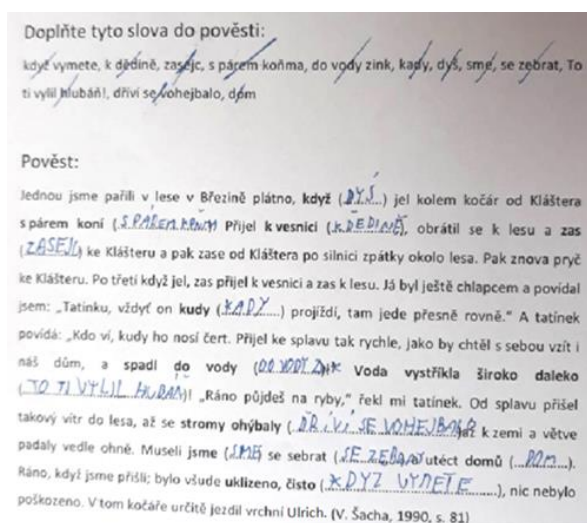 Doplňte tyto slova do pověsti:
když vymete, k dědině, zasejc, s párem koňma, do vody zink, kady, dyš, sme, se zebrat, To
ti vylil hlubáň!, dříví se vohejbalo, dom
Pověst:
Jednou jsme pařili v lese v Březině plátno, když (DYŠ) jel kolem kočár od Kláštera
s párem koní (S PÁREM KOŇMA Přijel k vesnici (K DĚDINĚ), obrátil se k lesu a zas
(ZASEJC) ke Klášteru a pak zase od Kláštera po silnici zpátky okolo lesa. Pak znova pryč
ke Klášteru. Po třetí když jel, zas přijel k vesnici a zas k lesu. Já byl ještě chlapcem a povídal
jsem: „Tatínku, vždyť on kudy (KADY) projíždí, tam jede přesně rovně." A tatínek
povídá: „Kdo ví, kudy ho nosí čert. Přijel ke splavu tak rychle, jako by chtěl s sebou vzít i
náš dům, a spadl do vody (DO VODY ZINK Voda vystříkla široko daleko
(TO TI VYLIL HLUBÁŇ)! „Ráno půjdeš na ryby," řekl mi tatínek. Od splavu přišel
takový vítr do lesa, až se stromy ohýbaly (DŘÍVÍ SE VOHEJBALO až k zemi a větve
padaly vedle ohně. Museli jsme (SME) se sebrat (SE ZEBRAT) a utéct domů (DOM).
Ráno, když jsme přišli; bylo všude uklizeno, čisto (KDYŽ VYMETE), nic nebylo
poškozeno. V tom kočáře určitě jezdil vrchní Ulrich. (V. Šacha, 1990, s. 81)